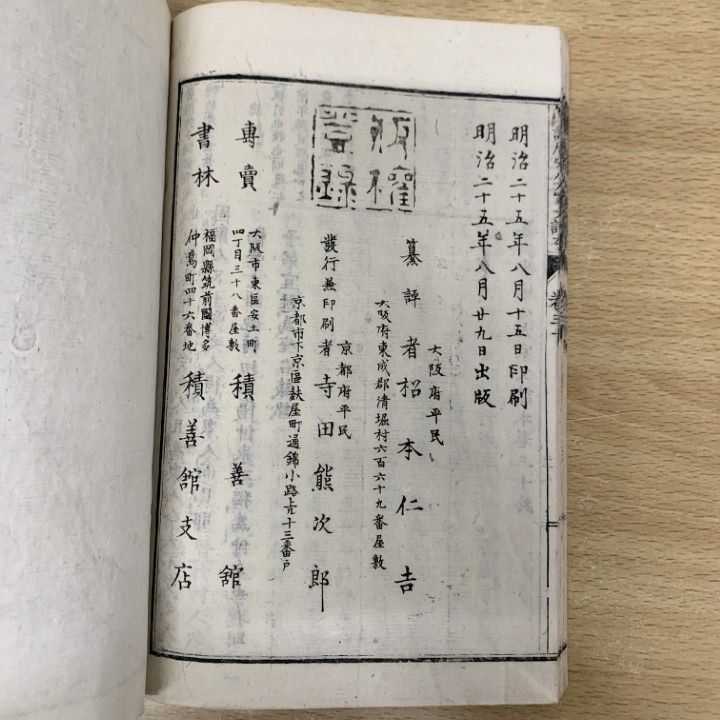 明治二十五年八月十五日印刷
明治二十五年八月廿九日出版
版權登録
大阪府平民
纂評者招本仁吉
大阪府東成郡清堀村六百六十九番屋敷
京都府平民
發行兼印刷者寺田熊次郎
京都市下京區麩屋町通錦小路上ル十三番戸
專賣
大阪市東區安土町
四丁目三十八番屋敷
積善館
書林
福岡縣筑前國博多
仲島町四十六番地
積善舘支店